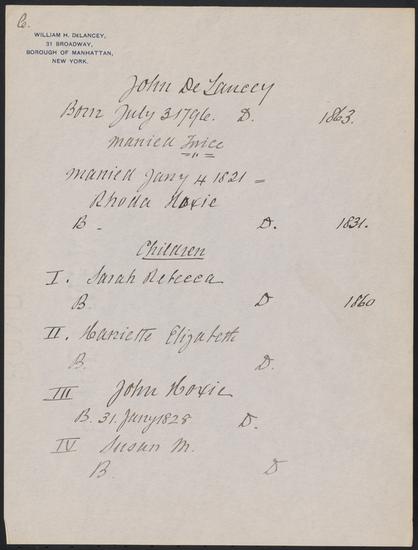 6.
WILLIAM H. DELANCEY,
31 BROADWAY,
BOROUGH OF MANHATTAN,
NEW YORK.
John De Lancey
Born July 3 1796. D. 1863.
married Twice
married Jany 4 1821 =
Rhoda Hoxie
B - D. 1831.
Children
I. Sarah Rebecca
B D 1860
II. Harriette Elizabeth
B. D.
III John Hoxie
B. 31. Jany 1828 D.
IV Susan M.
B. D